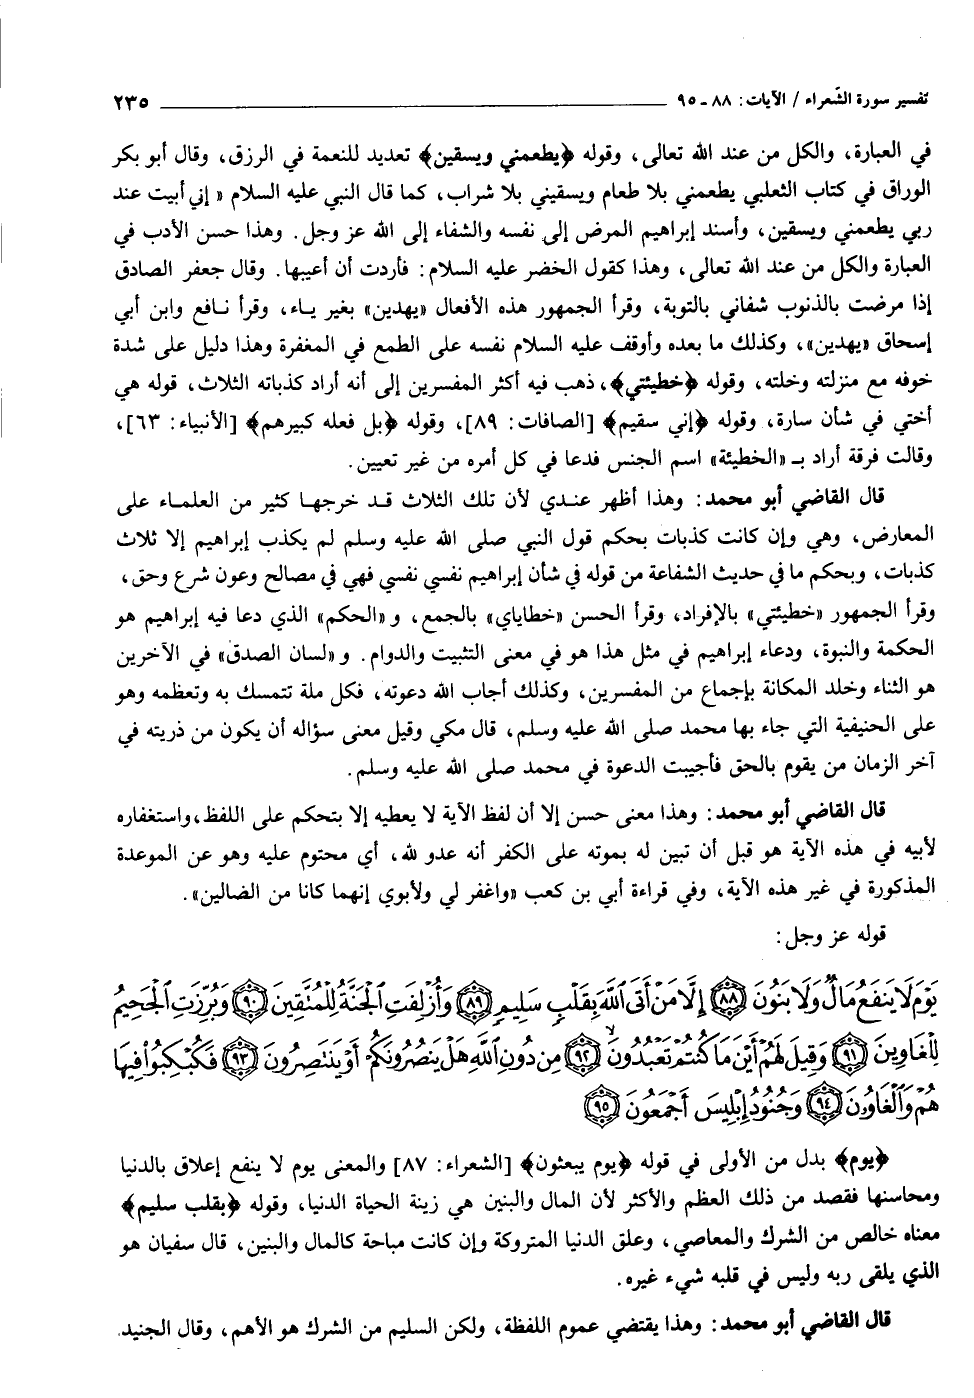 تفسير سورة الشعراء / الآيات: ٨٨ - ٩٥ ــــــــــــــــ ٢٣٥
في العبارة، والكل من عند الله تعالى، وقوله ﴿يطعمني ويسقين﴾ تعديد للنعمة في الرزق، وقال أبو بكر
الوراق في كتاب الثعلبي يطعمني بلا طعام ويسقيني بلا شراب، كما قال النبي عليه السلام « إني أبيت عند
ربي يطعمني ويسقين، وأسند إبراهيم المرض إلى نفسه والشفاء إلى الله عز وجل. وهذا حسن الأدب في
العبارة والكل من عند الله تعالى، وهذا كقول الخضر عليه السلام: فأردت أن أعيبها. وقال جعفر الصادق
إذا مرضت بالذنوب شفاني بالتوبة، وقرأ الجمهور هذه الأفعال «يهدين» بغير يـاء، وقرأ نـافع وابن أبي
إسحاق «يهدين»، وكذلك ما بعده وأوقف عليه السلام نفسه على الطمع في المغفرة وهذا دليل على شدة
خوفه مع منزلته وخلته، وقوله ﴿خطيئتي﴾، ذهب فيه أكثر المفسرين إلى أنه أراد كذباته الثلاث، قوله هي
أختي في شأن سارة، وقوله ﴿إني سقيم﴾ [الصافات: ٨٩]، وقوله ﴿بل فعله كبيرهم﴾ [الأنبياء: ٦٣]،
وقالت فرقة أراد بـ «الخطيئة» اسم الجنس فدعا في كل أمره من غير تعيين.
قال القاضي أبو محمد: وهذا أظهر عندي لأن تلك الثلاث قد خرجها كثير من العلماء على
المعارض، وهي وإن كانت كذبات بحكم قول النبي صلى الله عليه وسلم لم يكذب إبراهيم إلا ثلاث
كذبات، وبحكم ما في حديث الشفاعة من قوله في شأن إبراهيم نفسي نفسي فهي في مصالح وعون شرع وحق،
وقرأ الجمهور «خطيئتي» بالإفراد، وقرأ الحسن «خطاياي» بالجمع، و «الحكم» الذي دعا فيه إبراهيم هو
الحكمة والنبوة، ودعاء إبراهيم في مثل هذا هو في معنى التثبيت والدوام. و «لسان الصدق» في الآخرين
هو الثناء وخلد المكانة بإجماع من المفسرين، وكذلك أجاب الله دعوته، فكل ملة تتمسك به وتعظمه وهو
على الحنيفية التي جاء بها محمد صلى الله عليه وسلم، قال مكي وقيل معنى سؤاله أن يكون من ذريته في
آخر الزمان من يقوم بالحق فأجيبت الدعوة في محمد صلى الله عليه وسلم.
قال القاضي أبو محمد: وهذا معنى حسن إلا أن لفظ الآية لا يعطيه إلا بتحكم على اللفظ، واستغفاره
لأبيه في هذه الآية هو قبل أن تبين له بموته على الكفر أنه عدو لله، أي محتوم عليه وهو عن الموعدة
المذكورة في غير هذه الآية، وفي قراءة أبي بن كعب «واغفر لي ولأبوي إنهما كانا من الضالين».
قوله عز وجل:
يَوْمَ لَا يَنفَعُ مَالٌ وَلَا بَنُونَ ٨٨ إِلَّا مَنْ أَتَى ٱللَّهَ بِقَلْبٍ سَلِيمٍ ٨٩ وَأُزْلِفَتِ ٱلْجَنَّةُ لِلْمُتَّقِينَ ٩٠ وَبُرِّزَتِ ٱلْجَحِيمُ
لِلْغَاوِينَ ٩١ وَقِيلَ لَهُمْ أَيْنَ مَا كُنتُمْ تَعْبُدُونَ ٩٢ مِن دُونِ ٱللَّهِ هَلْ يَنصُرُونَكُمْ أَوْ يَنتَصِرُونَ ٩٣ فَكُبْكِبُوا۟ فِيهَا
هُمْ وَٱلْغَاوُۥنَ ٩٤ وَجُنُودُ إِبْلِيسَ أَجْمَعُونَ ٩٥
﴿يوم﴾ بدل من الأولى في قوله ﴿يوم يبعثون﴾ [الشعراء: ٨٧] والمعنى يوم لا ينفع إعلاق بالدنيا
ومحاسنها فقصد من ذلك العظم والأكثر لأن المال والبنين هي زينة الحياة الدنيا، وقوله ﴿بقلب سليم﴾
معناه خالص من الشرك والمعاصي، وعلق الدنيا المتروكة وإن كانت مباحة كالمال والبنين، قال سفيان هو
الذي يلقى ربه وليس في قلبه شيء غيره.
قال القاضي أبو محمد: وهذا يقتضي عموم اللفظة، ولكن السليم من الشرك هو الأهم، وقال الجنيد